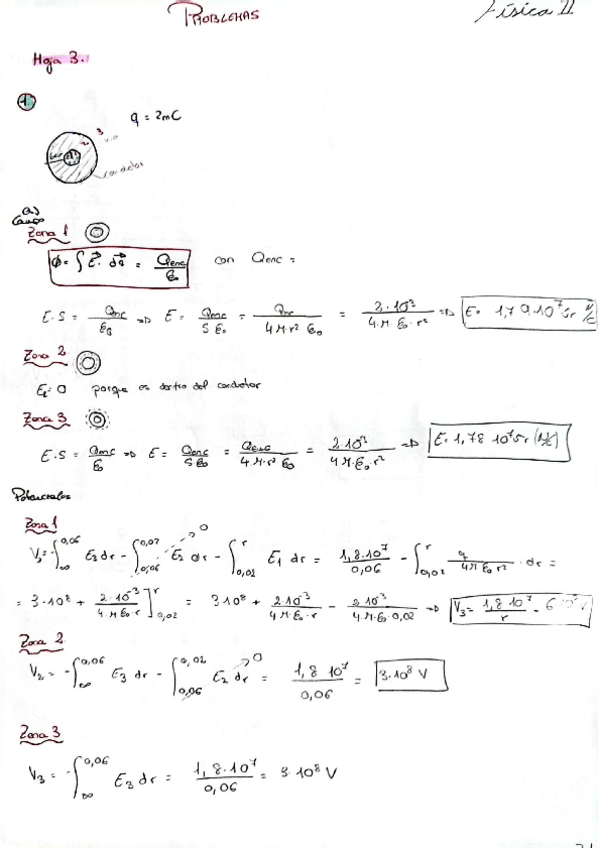 PROBLEMAS
Física II
Hoja 3.
1.
q = 2mC
3
conductor
a) Campo
Zona 1
Φ = ∫ E⃗ · ds⃗ = Qenc/ε₀ con Qenc =
E·S = Qenc/ε₀ => E = Qenc/(S ε₀) = Qenc/(4π·r² ε₀) = 2·10⁻³/(4·π·ε₀·r²) =>
Zona 2
E₂ = 0 porque es dentro del conductor
Zona 3
E·S = Qenc/ε₀ => E = Qenc/(S ε₀) = Qenc/(4π·r² ε₀) = 2·10⁻³/(4π·ε₀·r²) =>
Potenciales
Zona 1
= -∫_∞^0,06 E₃ dr - ∫_0,06^0,02 E₂ dr - ∫_0,02^r E₁ dr = 1,8·10⁷/0,06 - ∫_0,02^r q/(4π ε₀ r²) · dr =
= 3·10⁸ + 2·10⁻³/(4·π·ε₀·r) ]_0,02^r = 3·10⁸ + 2·10⁻³/(4π·ε₀·r) - 2·10⁻³/(4π·ε₀·0,02) => V₃ = 1,8·10⁷/r -
Zona 2
V₂ = -∫_∞^0,06 E₃ dr - ∫_0,06^0,02 E₂ dr = 1,8·10⁷/0,06 = 3·10⁸ V
0
Zona 3
V₃ = -∫_∞^0,06 E₃ dr = 1,8·10⁷/0,06 = 3·10⁸ V